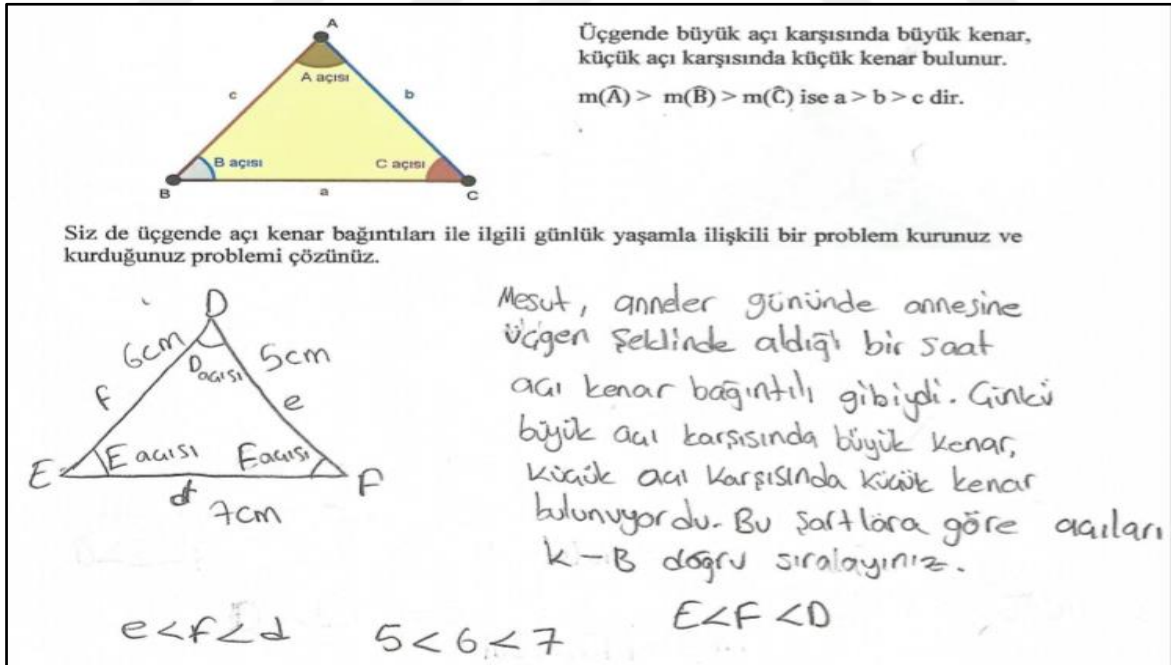 A
A açısı
c
b
B açısı
C açısı
B
a
C
Üçgende büyük açı karşısında büyük kenar,
küçük açı karşısında küçük kenar bulunur.
m(Â) > m(B̂) > m(Ĉ) ise a > b > c dir.
Siz de üçgende açı kenar bağıntıları ile ilgili günlük yaşamla ilişkili bir problem kurunuz ve
kurduğunuz problemi çözünüz.
D
6cm
D açısı
5cm
f
e
E
E açısı
E açısı
F
d
7cm
Mesut, anneler gününde annesine
üçgen şeklinde aldığı bir saat
açı kenar bağıntılı gibiydi. Çünkü
büyük açı karşısında büyük kenar,
küçük açı karşısında küçük kenar
bulunuyordu. Bu şartlara göre açıları
k-B doğru sıralayınız.
e<f<d
5<6<7
E<F<D